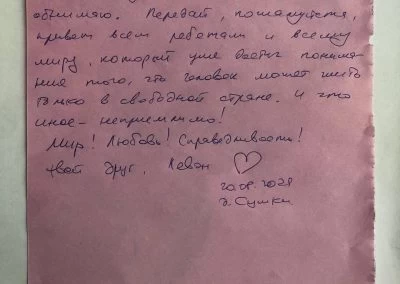 обнимаю. Передай, пожалуйста,
привет всем ребятам и всему
миру, который уже достиг понима-
ние того, что человек может жить
только в свободной стране. и это
иное - неприемлимо!
Мир! Любовь! Справедливость!
твой друг, Леван ♡
20.09.202
д. Сумки